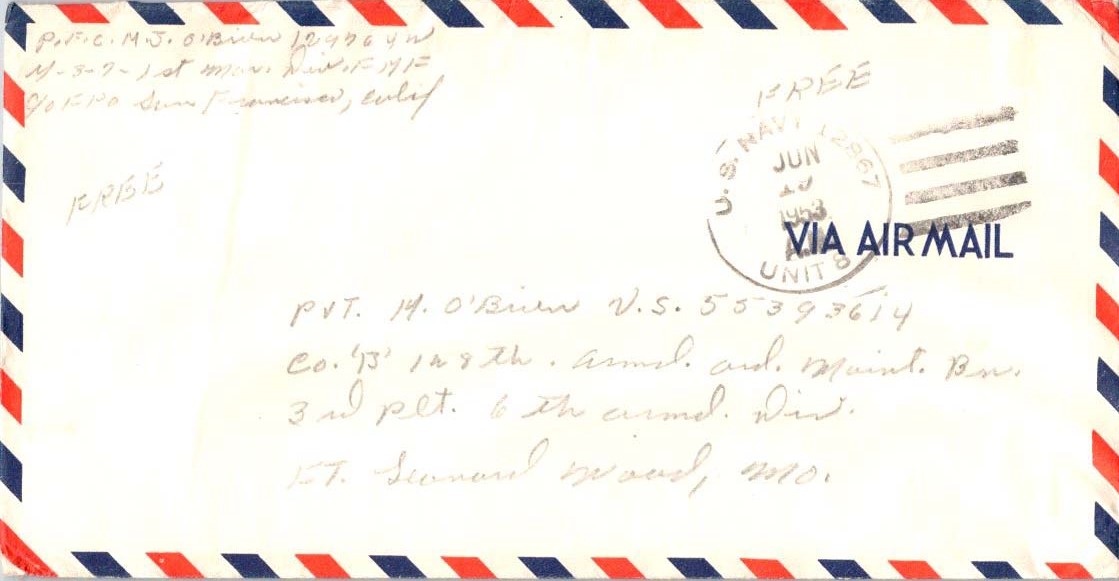 P.F.C. M.J. O'Brien
M-3-7-1st Mar. Div. F M F
c/o F P O San Francisco, Calif
FREE
FREE
U.S. NAVY 12867
JUN
1953
UNIT 8
VIA AIR MAIL
PVT. M. O'Brien U.S. 55393614
Co. 'B' 128th. Armd. Ord. Maint. Bn.
3rd Plt. 6th Armd. Div.
FT. Leonard Wood, Mo.